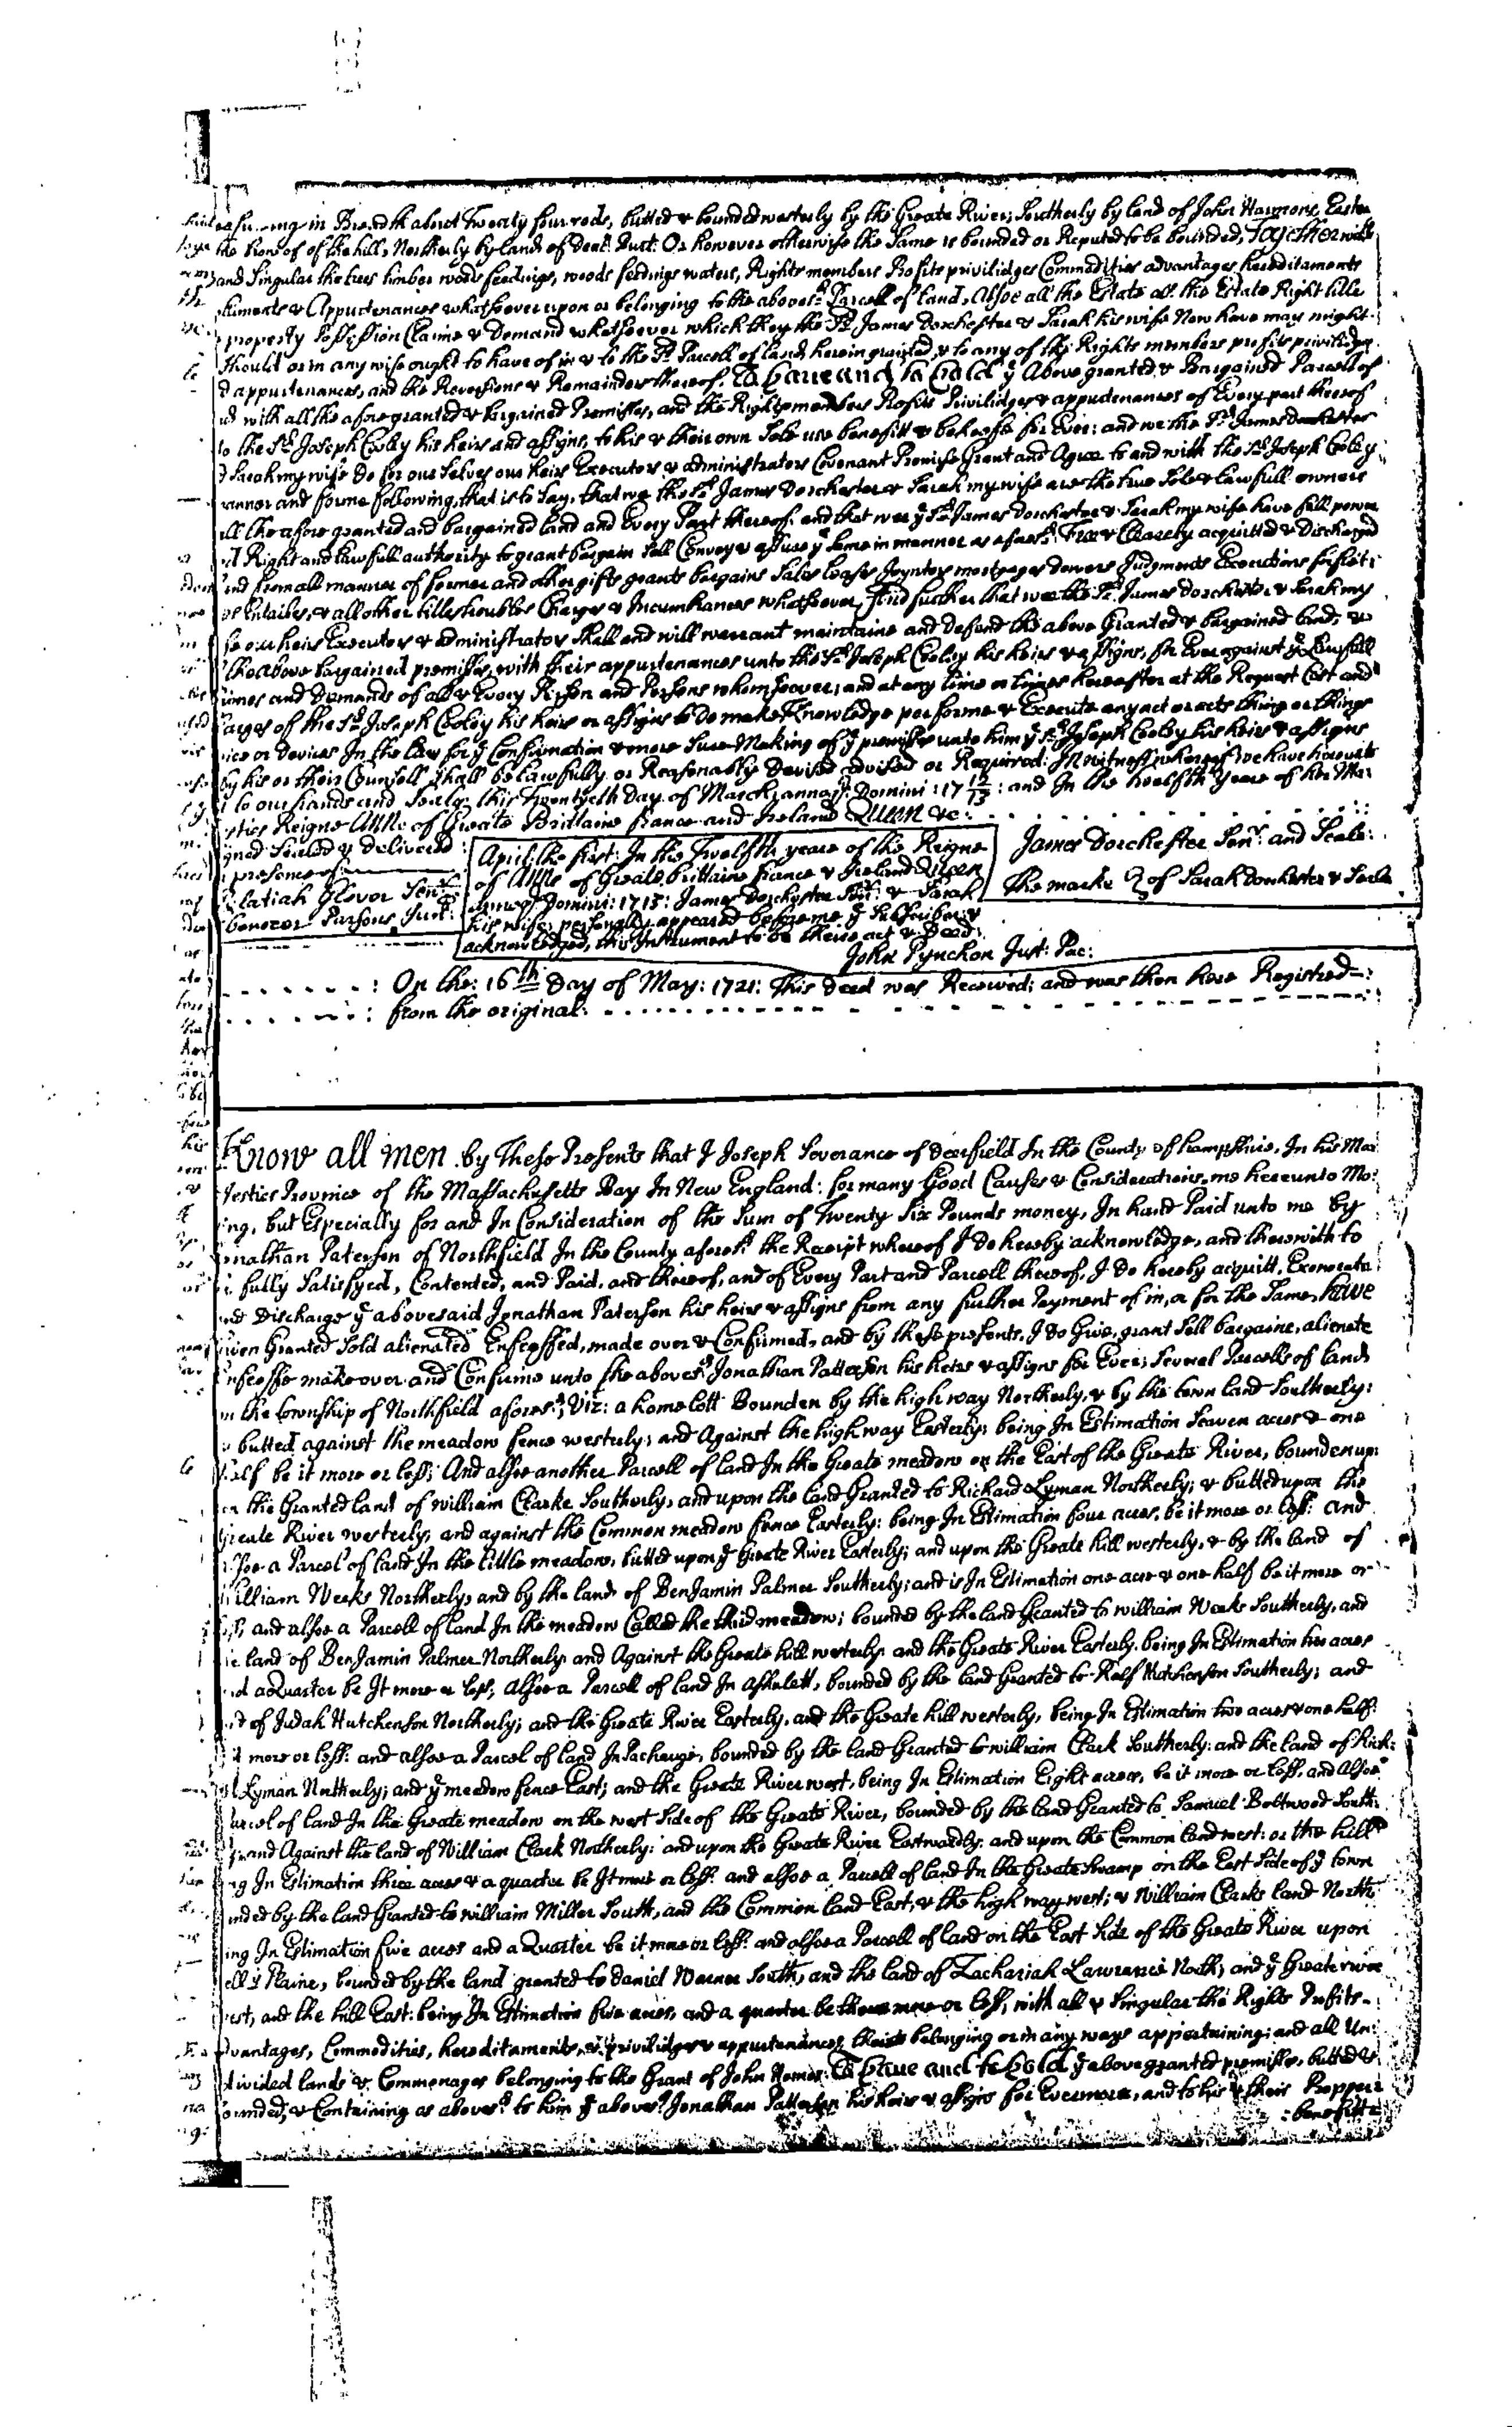 in Breadth about Twenty four rods, butted & bounded westerly by the Greate River; Southerly by land of John Harmons, Easter
the brow of of the hill, Northerly by land of Deac: Burt: Or however otherwise the Same is bounded or Reputed to be bounded, Together with
and Singular the trees timber woods feedings, woods feedings waters, Rights members Profits priviledges Commodities advantages hereditaments
& Appurtenances whatsoever upon or belonging to the aboves:d Parcell of land, Alsoe all the Estate all the Estate Right title
property Possession Claime & Demand whatsoever which they the s:d James Dorchester & Sarah his wife Now have may might
Should or in any wise ought to have of in & to the s:d Parcell of land herein granted & to any of the Rights members profits priviledges
appurtenances, and the Reversions & Remainders thereof. To have and to hold ye Above granted & Bargained Parcell of
with all the afore granted & bargained Premisses, and the Rights members Profits Privilidges & appurtenances of Every part thereof
to the s:d Joseph Cooley his heirs and assigns, to his & their own Sole use benefitt & behoofe for Ever: and we the s:d James Dorchester
Sarah my wife do for our Selves our heirs Executors & administrators Covenant Promise Grant and Agree to and with the s:d Joseph Cooley
and forme following, that is to Say, that we the s:d James Dorchester & Sarah my wife are the true Sole & lawfull owners
all the afore granted and bargained land and Every Part thereof. and that wee ye s:d James Dorchester & Sarah my wife have full power
Right and lawfull authority to grant bargain Sell Convey & assure ye Same in manner as afores:d: Free & Clearely acquitted & Discharged
and from all manner of former and other gifts grants bargains Sales leases Joynters mortgages dowers Judgments Executions
Entailes, & all other titles troubles Charges & Incumbrances whatsoever, And further that wee the s:d James Dorchester & Sarah my
our heirs Executors & administrators Shall and will warrant maintaine and defend the above Granted & bargained land, &
the above bargained premisses, with their appurtenances unto the s:d Joseph Cooley his heirs & assigns, for Ever against ye Lawfull
and Demands of all & Every Person and Persons whomsoever; and at any time or times hereafter at the Request Cost and
of the s:d Joseph Cooley his heirs or assigns to do make Knowledge performe & Execute any act or acts thing or things
or Devices In the Law for ye Confirmation & more Sure Making of ye premisses unto him ye s:d Joseph Cooley his heirs & assigns
by his or their Counsell Shall be Lawfully or Reasonably Devised advised or Required: In witness whereof we have hereunto
to our hands and Seals this Twentyeth Day of March annoq: Domini: 17 12/13: and In the twelfth Yeare of her Ma:
Reigne Anne of Greate Brittaine france and Ireland Queen &c:
Sealed & Delivered
presence of
Pelatiah Glover Sen:r
Parsons Jun:r
April the first: In the Twelfth yeare of the Reigne
of Anne of Greate Brittaine france & Ireland Queen
annoq: Domini: 1713: James Dorchester Sen:r & Sarah
his wife personally appeared before me ye Subscriber &
acknowledged, this Instrument to be theire act & Deed:
John Pynchon Just: Pac:
James Dorchester Sen:r and Seale:
The marke of Sarah Dorchester & Seale
: On the: 16th Day of May: 1721: This deed was Received; and was then here Registred
: from the original:
Know all men by These Presents that I Joseph Severance of Deerfield In the County of hampshire, In his Ma:
Jesties Province of the Massachusetts Bay In New England: for many Good Causes & Considerations, me hereunto Mo:
ing, but Especially for and In Consideration of the Sum of Twenty Six Pounds money, In hand Paid unto me by
Jonathan Paterson of Northfield In the County afores:d the Receipt whereof I do hereby acknowledge, and therewith to
fully Satisfyed, Contented, and Paid, and thereof, and of Every Part and Parcell thereof, I do hereby acquitt, Exonerate
and Discharge ye abovesaid Jonathan Paterson his heirs & assigns from any further Payment of in, or for the Same, have
Given Granted Sold alienated and Enfeoffed, made over & Confirmed, and by these presents, I do Give, grant Sell bargaine, alienate
Enfeoffe make over and Confirme unto the aboves:d Jonathan Patterson his heirs & assigns for Ever; Several Parcells of land
in the township of Northfield afores:d; Viz: a home lott Bounden by the high way Northerly, & by the town land Southerly:
butted against the meadow fence westerly; and Against the high way Easterly; being In Estimation Seaven acres & one
half be it more or less; And alsoe another Parcell of land In the Greate meadow on the East of the Greate River, bounden up:
on the Granted land of William Clarke Southerly, and upon the land Granted to Richard Lyman Northerly; & butted upon the
Greate River westerly; and against the Common meadow fence Easterly: being In Estimation four acres, be it more or less: and
alsoe a Parcel of land In the little meadow, butted upon ye Greate River Easterly; and upon the Greate hill westerly, & by the land of
William Weeks Northerly, and by the land of Benjamin Palmer Southerly; and is In Estimation one acre & one half be it more or
less; and alsoe a Parcell of land In the meadow Called the third meadow; bounded by the land Granted to william Weeks Southerly, and
the land of Benjamin Palmer Northerly and Against the Greate hill westerly and the Greate River Easterly, being In Estimation two acres
and a Quarter be It more or less; alsoe a Parcell of land In ashulett, bounded by the land Granted to Ralf Hutchenson Southerly; and
of Judah Hutchenson Northerly; and the Greate River Easterly, and the Greate hill westerly, being In Estimation two acres & one half:
it more or less: and alsoe a Parcel of land In Pachauge, bounded by the land Granted to william Clark Southerly: and the land of Rich:
Lyman Northerly; and ye meadow fence East; and the Greate River west, being In Estimation Eight acres, be it more or less, and Alsoe
Parcel of land In the Greate meadow on the west Side of the Greate River, bounded by the land Granted to Samuel Boltwood South:
and Against the land of William Clark Northerly: and upon the Greate River Eastwardly, and upon the Common land west: or the hill
ing In Estimation three acres & a quarter be It more or less: and alsoe a Parcell of land In the Greate Swamp on the East Side of ye town
by the land Granted to william Miller South, and the Common land East, & the high way west; & William Clarks land North
ing In Estimation five acres and a Quarter be it more or less: and alsoe a Parcell of land on the East Side of the Greate River upon
Plaine, bounded by the land granted to Daniel Warner South, and the land of Zachariah Lawrance North; and ye Greate river
west, and the hill East: being In Estimation five acres, and a quarter be there more or less, with all & Singular the Rights Profits
advantages, Commodities, hereditaments, & privilidges & appurtenances, thereto belonging or in any ways appertaining; and all Un:
divided lands & Commonages belonging to the Grant of John To have and to hold ye above granted premisses, butted &
bounded, & Containing as aboves:d to him ye aboves:d Jonathan Patterson his heirs & assigns for Evermore, and to his & their Propper
: benefitt